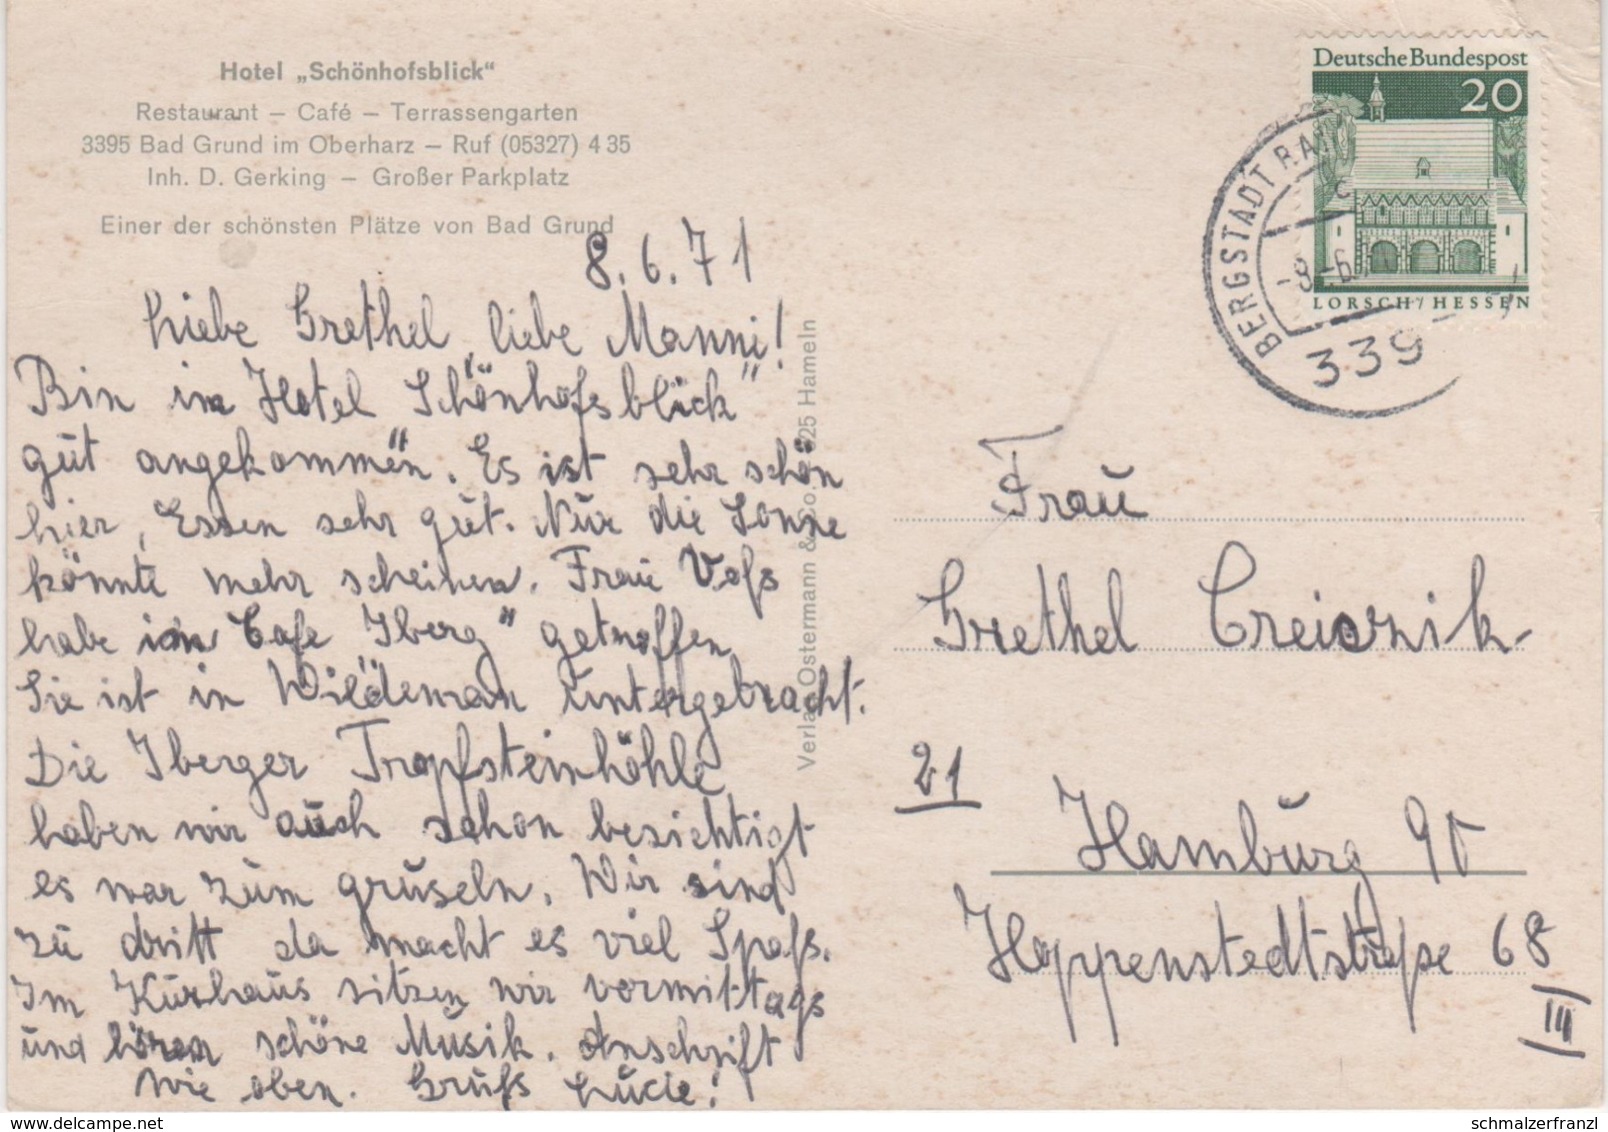 Hotel „Schönhofsblick“
Restaurant – Café – Terrassengarten
3395 Bad Grund im Oberharz – Ruf (05327) 4 35
Inh. D. Gerking – Großer Parkplatz
Einer der schönsten Plätze von Bad Grund
8.6.71
Liebe Grethel, liebe Manni!
Bin im Hotel Schönhofsblick"
gut angekommen. Es ist sehr schön
hier, Essen sehr gut. Nur die Sonne
könnte mehr scheinen. Frau Voß
habe im Cafe Iberg" getroffen
Sie ist in Wildeman untergebracht.
Die Iberger Tropfsteinhöhle
haben wir auch schon besichtigt
es war zum gruseln. Wir sind
zu dritt da macht es viel Spaß.
Im Kurhaus sitzen wir vormittags
und hören schöne Musik. Anschrift
wie oben. Gruß Lucie!
Verlag Ostermann & Co. 325 Hameln
Deutsche Bundespost
20
LORSCH / HESSEN
BERGSTADT BAD
c
-8.-6.
339
Frau
Grethel
21
Hamburg 90
Hoppenstedtstraße 68
III
delcampe.net
schmalzerfranzl